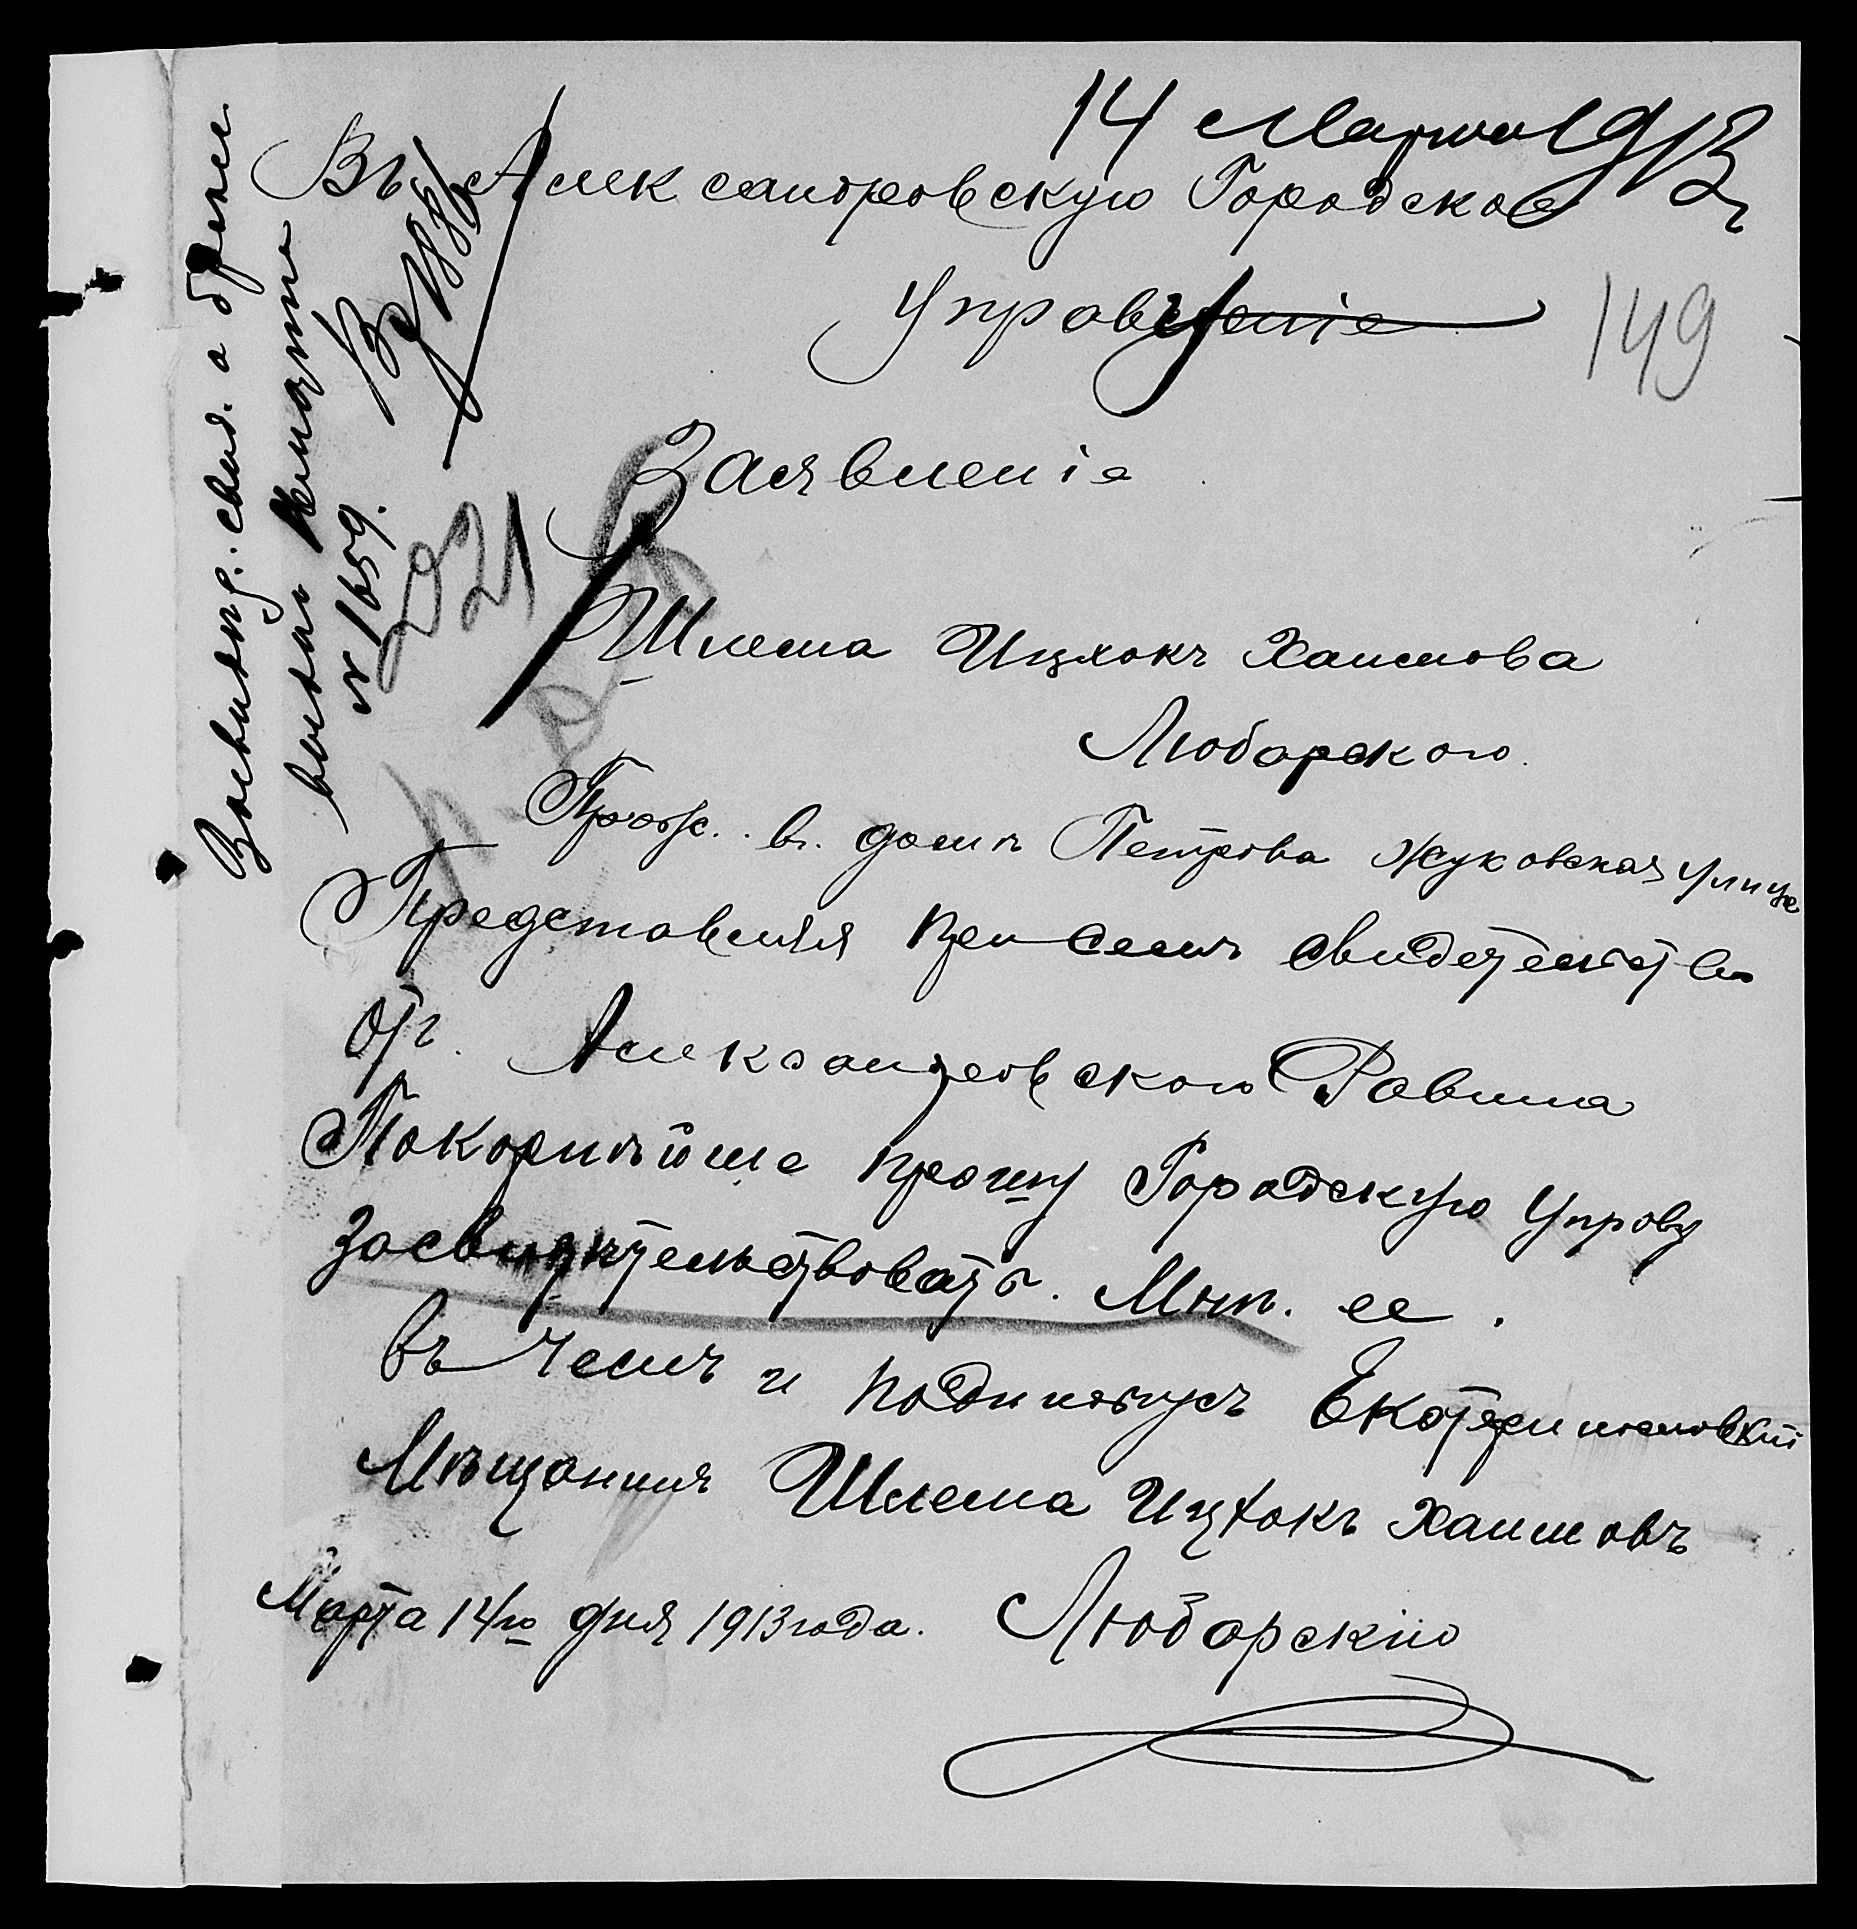 14 Марта 1913
Въ Александровскую Городское
Управленіе
149
Заявленіе
Шлема Ицхокъ Хаимова
Любарского.
Прож. в. доми Петрова Жуковская улице
Представляя при семъ свидетельство
отъ. Александровского Равина
Покорнѣйше прошу Городскую Управу
засвидѣтельствовать. Мнѣ. ее.
въ чемъ и подпишусь Екатеринославскій
Мѣщанинъ Шлема Ицхокъ Хаимовъ
Марта 14го дня 1913 года. Любарскій
Засвидѣт. свид. о брак.
выдалъ
№ 1659.